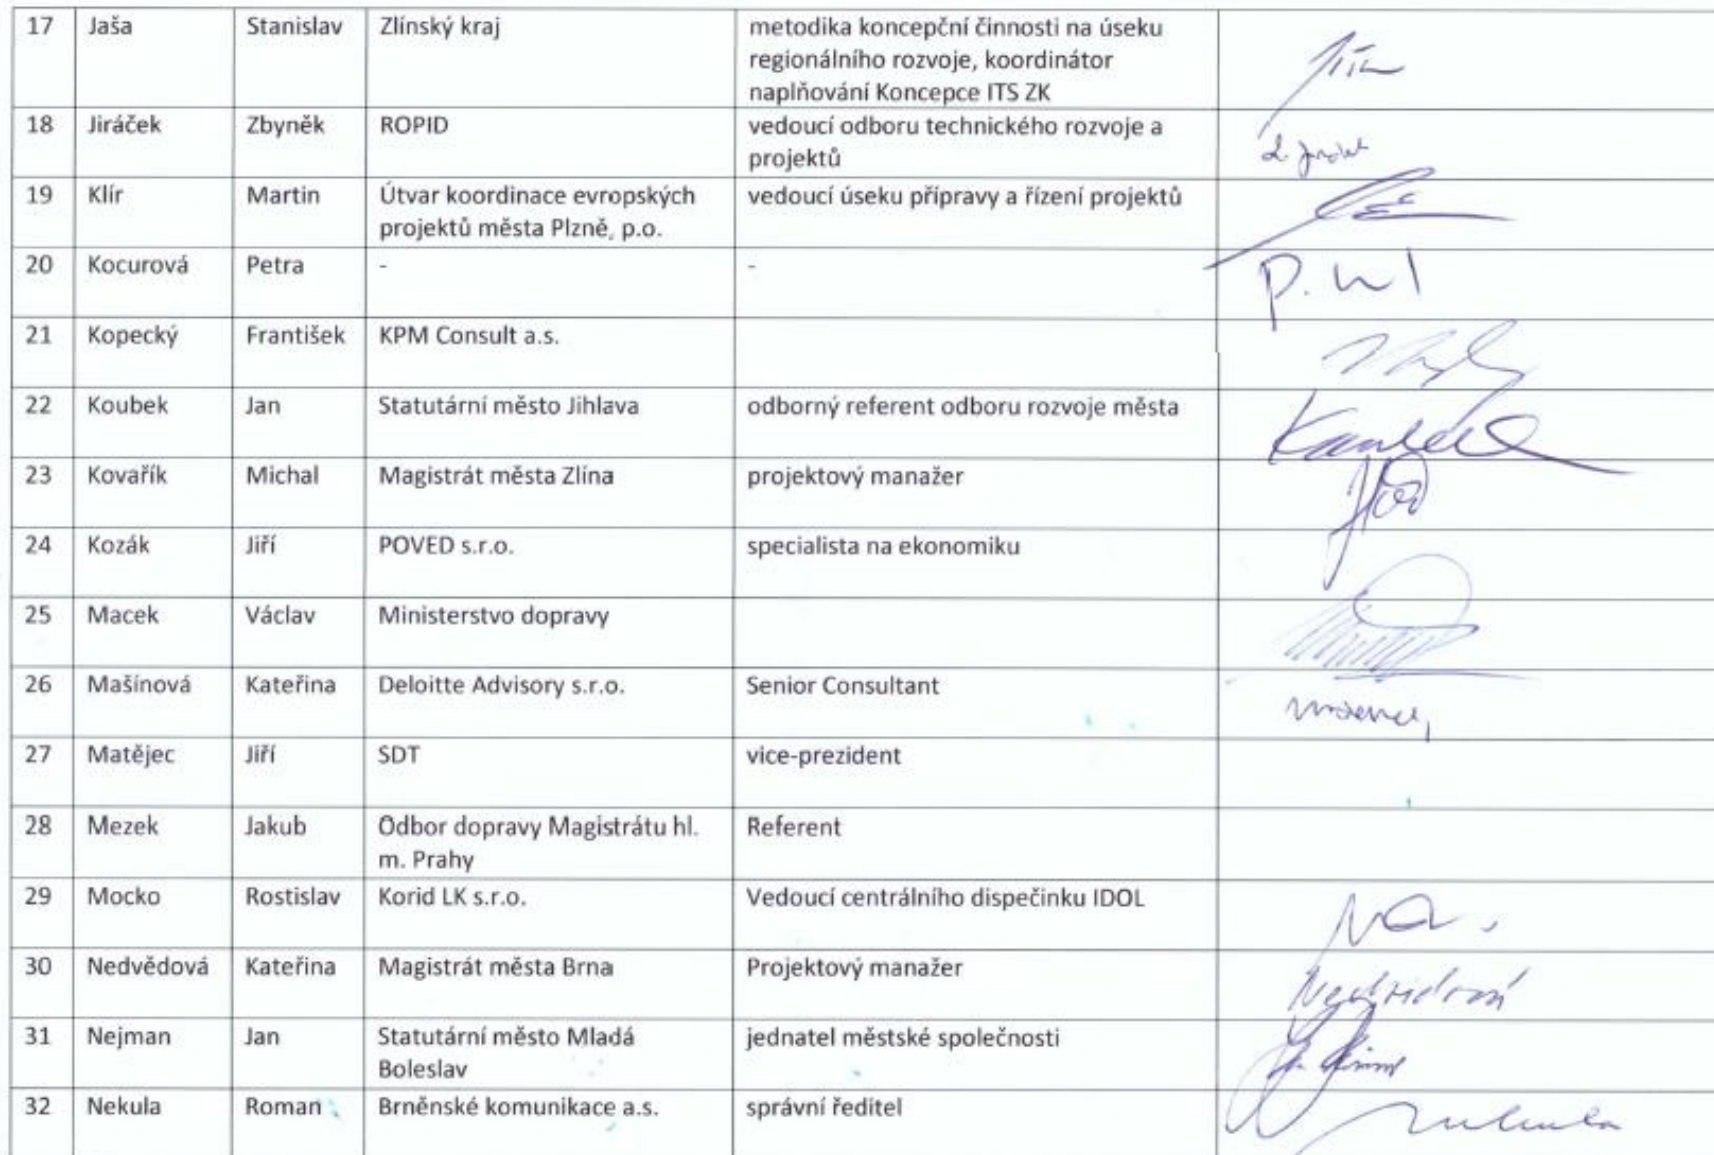 17 Jaša Stanislav Zlínský kraj metodika koncepční činnosti na úseku
regionálního rozvoje, koordinátor
naplňování Koncepce ITS ZK
18 Jiráček Zbyněk ROPID vedoucí odboru technického rozvoje a
projektů
19 Klír Martin Útvar koordinace evropských vedoucí úseku přípravy a řízení projektů
projektů města Plzně, p.o.
20 Kocurová Petra - -
21 Kopecký František KPM Consult a.s.
22 Koubek Jan Statutární město Jihlava odborný referent odboru rozvoje města
23 Kovařík Michal Magistrát města Zlína projektový manažer
24 Kozák Jiří POVED s.r.o. specialista na ekonomiku
25 Macek Václav Ministerstvo dopravy
26 Mašínová Kateřina Deloitte Advisory s.r.o. Senior Consultant
27 Matějec Jiří SDT vice-prezident
28 Mezek Jakub Odbor dopravy Magistrátu hl. Referent
m. Prahy
29 Mocko Rostislav Korid LK s.r.o. Vedoucí centrálního dispečinku IDOL
30 Nedvědová Kateřina Magistrát města Brna Projektový manažer
31 Nejman Jan Statutární město Mladá jednatel městské společnosti
Boleslav
32 Nekula Roman Brněnské komunikace a.s. správní ředitel